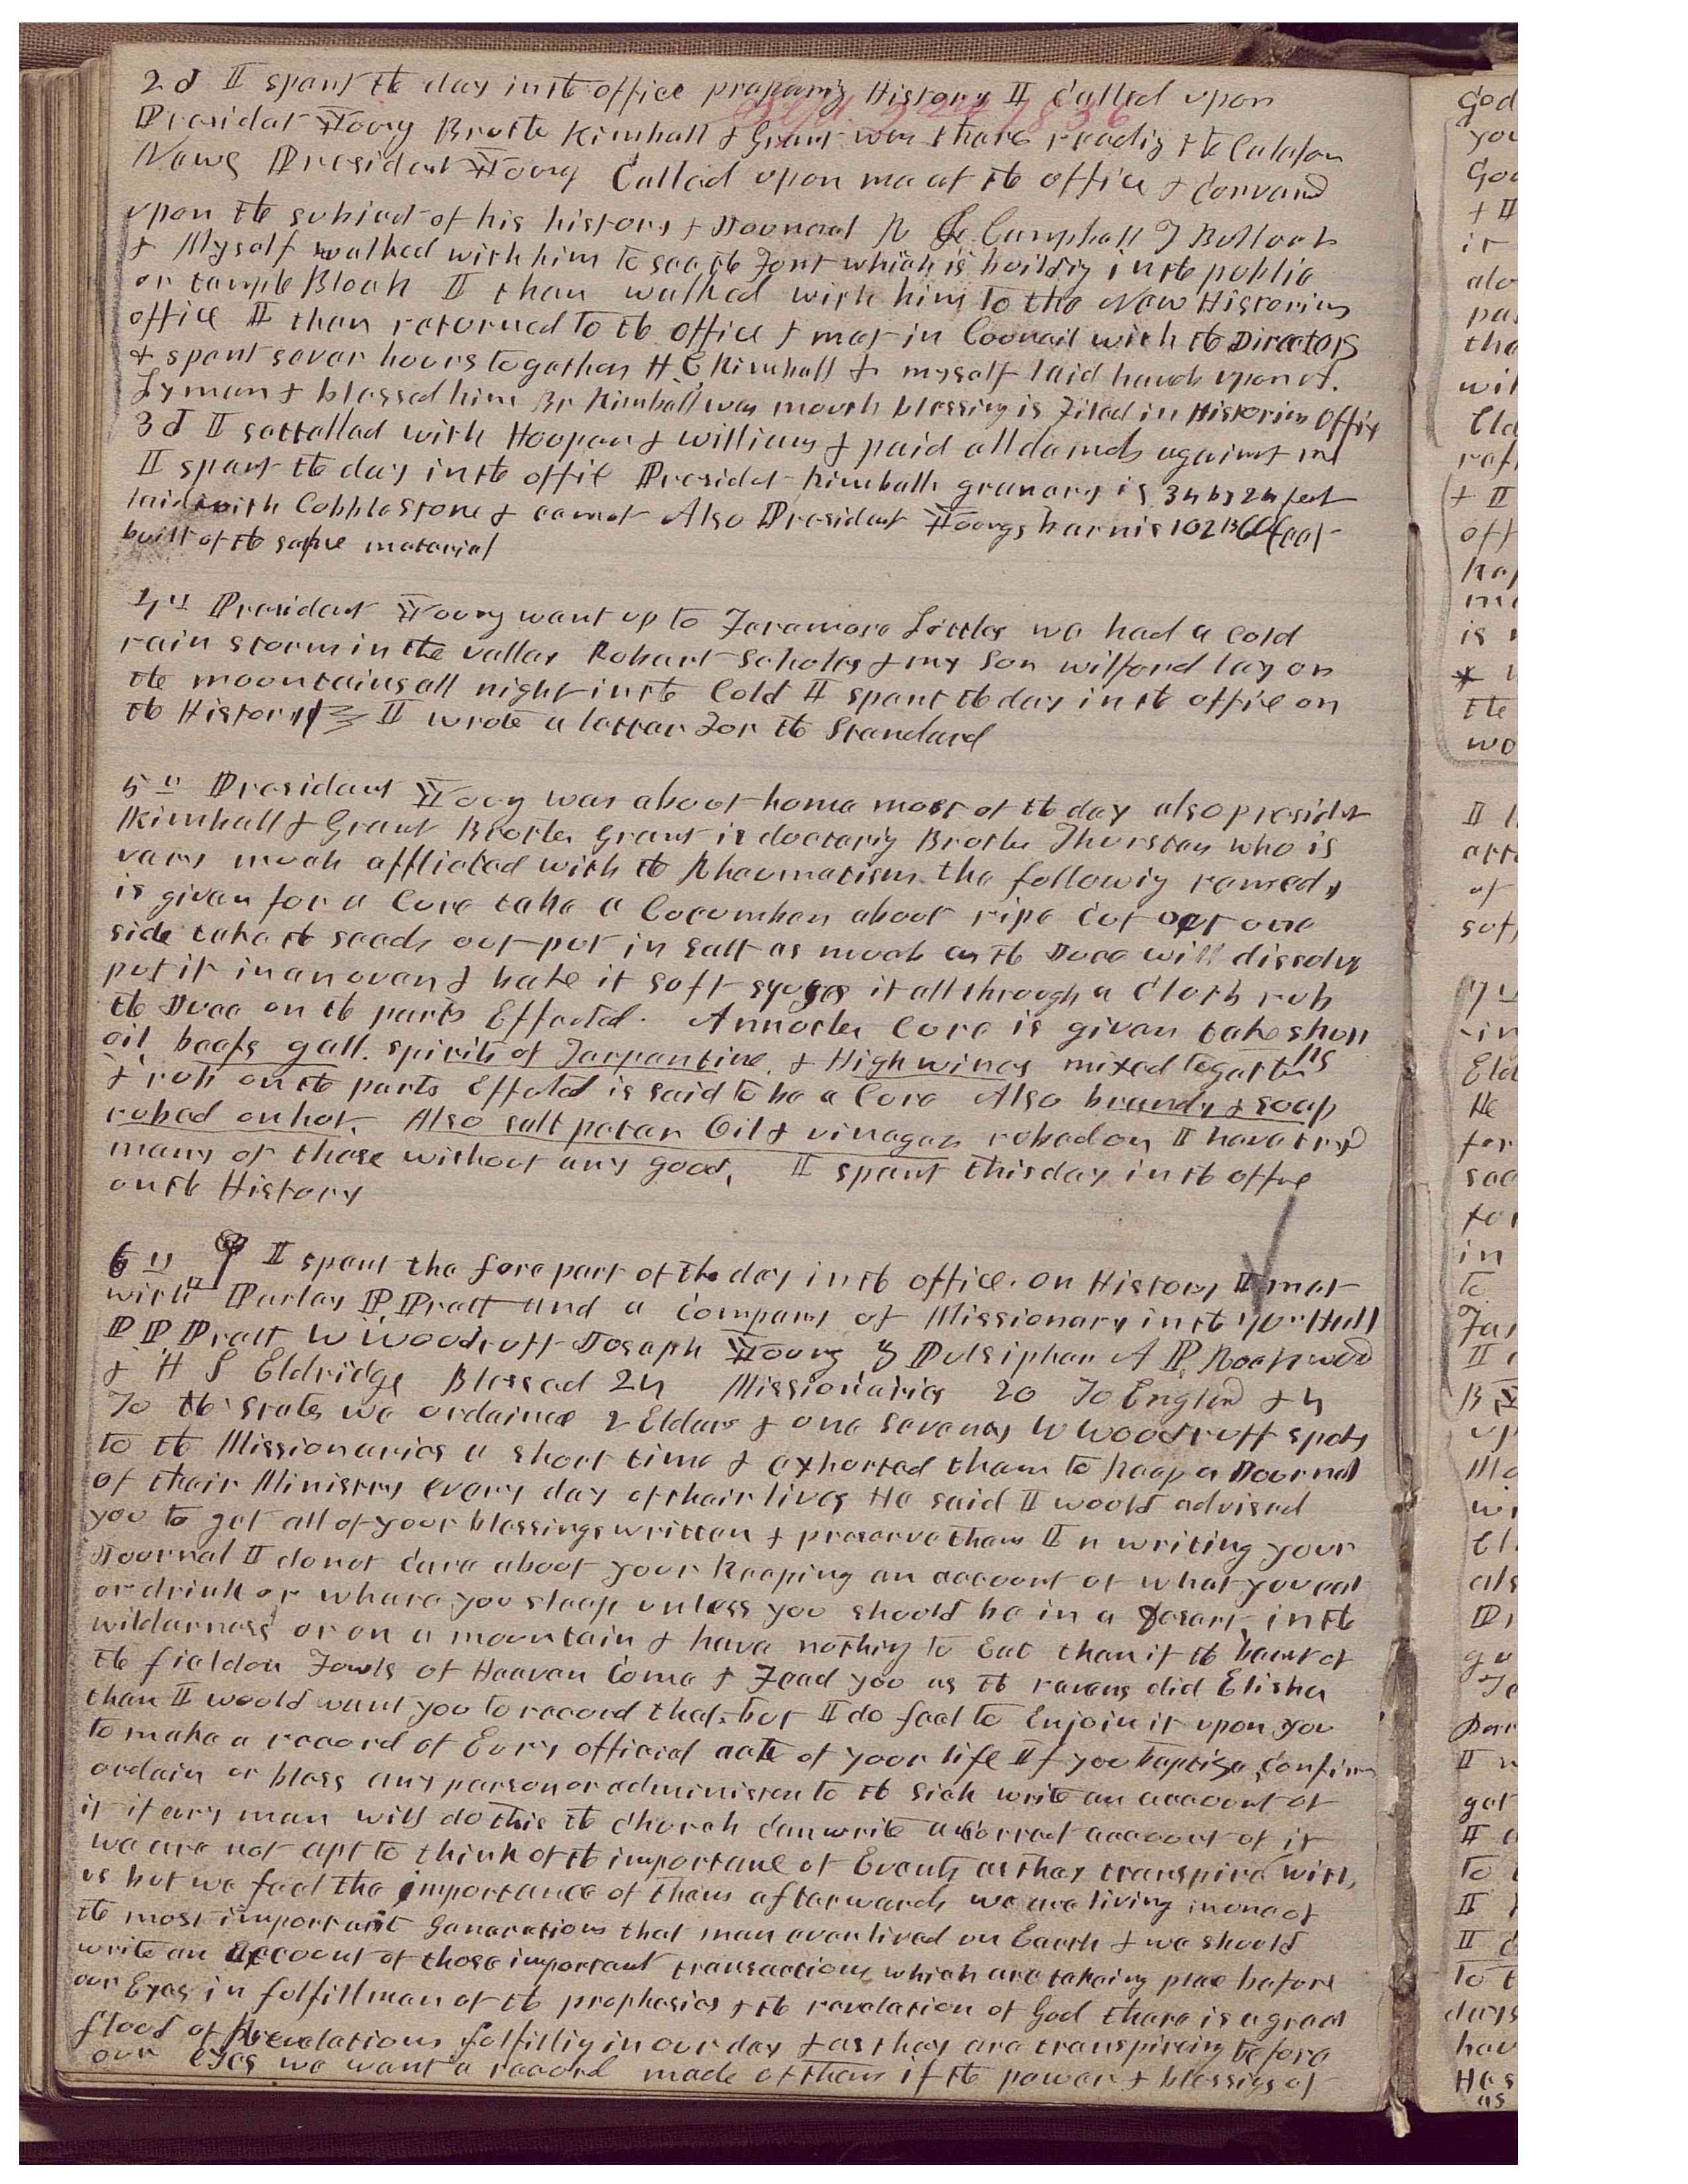 2d I spent the day in the office prepareing History I Called upon
Sept. 2nd 1856
President Young Brother Kimball & Grant was there reading the Calafor
News President Young Called upon me at the office & Convers[ed]
upon the subject of his history & Journal R L Campbell T Bullock
& Myself walked with him to see the Font which is building in the public
or temple Block I then walked with him to the New Historians
office I then returned to the office & met in Council with the Directors
& spent sever hours together H. C. Kimball & myself laid hands upon A.
Lyman & blessed him Br Kimball was mouth blessing is Filed in Historians Office
3d I settelled with Hooper & Williams & paid all demds against me
I spent the day in the office Presidet Kimballs granary is 34 by 24 feet
laid with Cobble Stone & cement Also President Youngs barn is 102 by 60 feet
built of the same material
4th President Young went up to Feramore Littles we had a Cold
rain storm in the valley Robert Scholes & my son Wilford lay on
the mountains all night in the Cold I spent the day in the office on
the History I wrote a letter For the Standard
5th President Young was about home most of the day also presidet
Kimball & Grant Brother Grant is doctering Brother Thursten who is
very much afflicted with the Rheumatism the following remedy
is given for a Cure take a Cocumber about ripe Cut out one
side take the seeds out put in salt as much as the Juce will dissolve
put it in an oven & bake it soft squees it all through a Cloth rub
the Juce on the parts Effected. Annother Cure is given take shop
oil beefs gall. spirits of Terpentine. & High wines mixed togather
& rub on the parts Effeted is said to be a Cure Also brandy & soap
rubed on hot. Also salt peter Oil & vinager rubed on I have tryed
many of those without any good. I spent this day in the office
on the History
6th I spent the fore part of the day in the office on History I met
with Parley P Pratt and a Company of Missionary in the 70s Hall
P P Pratt W Woodruff Joseph Young Z Pulsipher A P Rockwood
& H S Eldridge Blessed 24 Missionaries 20 To England & 4
To the States we ordained 2 Elders & one Seventy W Woodruff spoke
to the Missionaries a short time & exhorted them to keep a Journal
of their Ministry every day of their lives He said I would advised
you to get all of your blessings written & preserve them In writing your
Journal I do not Care about your keeping an account of what you eat
or drink or where you sleep unless you should be in a Desert, in the
wilderness or on a mountain & have nothing to Eat then if the beast of
the field or Fowls of Heaven Come & Feed you as the ravens did Elisha
then I would want you to record that, but I do feel to Enjoin it upon you
to make a record of Evry official acts of your life If you baptise, Confirm
ordain or bless any person or administer to the sick write an account of
it if evry man will do this the Church Can write a Correct account of it
we are not apt to think of the importane of Events as they transpire with
us but we feel the importance of them afterwards we are living in one of
the most important Generations that man ever lived on Earth & we should
write an account of those important transactions which are takeing place before
our Eyes in fulfillmen of the prophesies & the revelation of God there is a great
flood of Revelations fulfilling in our day & as they are transpireing before
our eyes we want a record made of them if the power & blessigs of